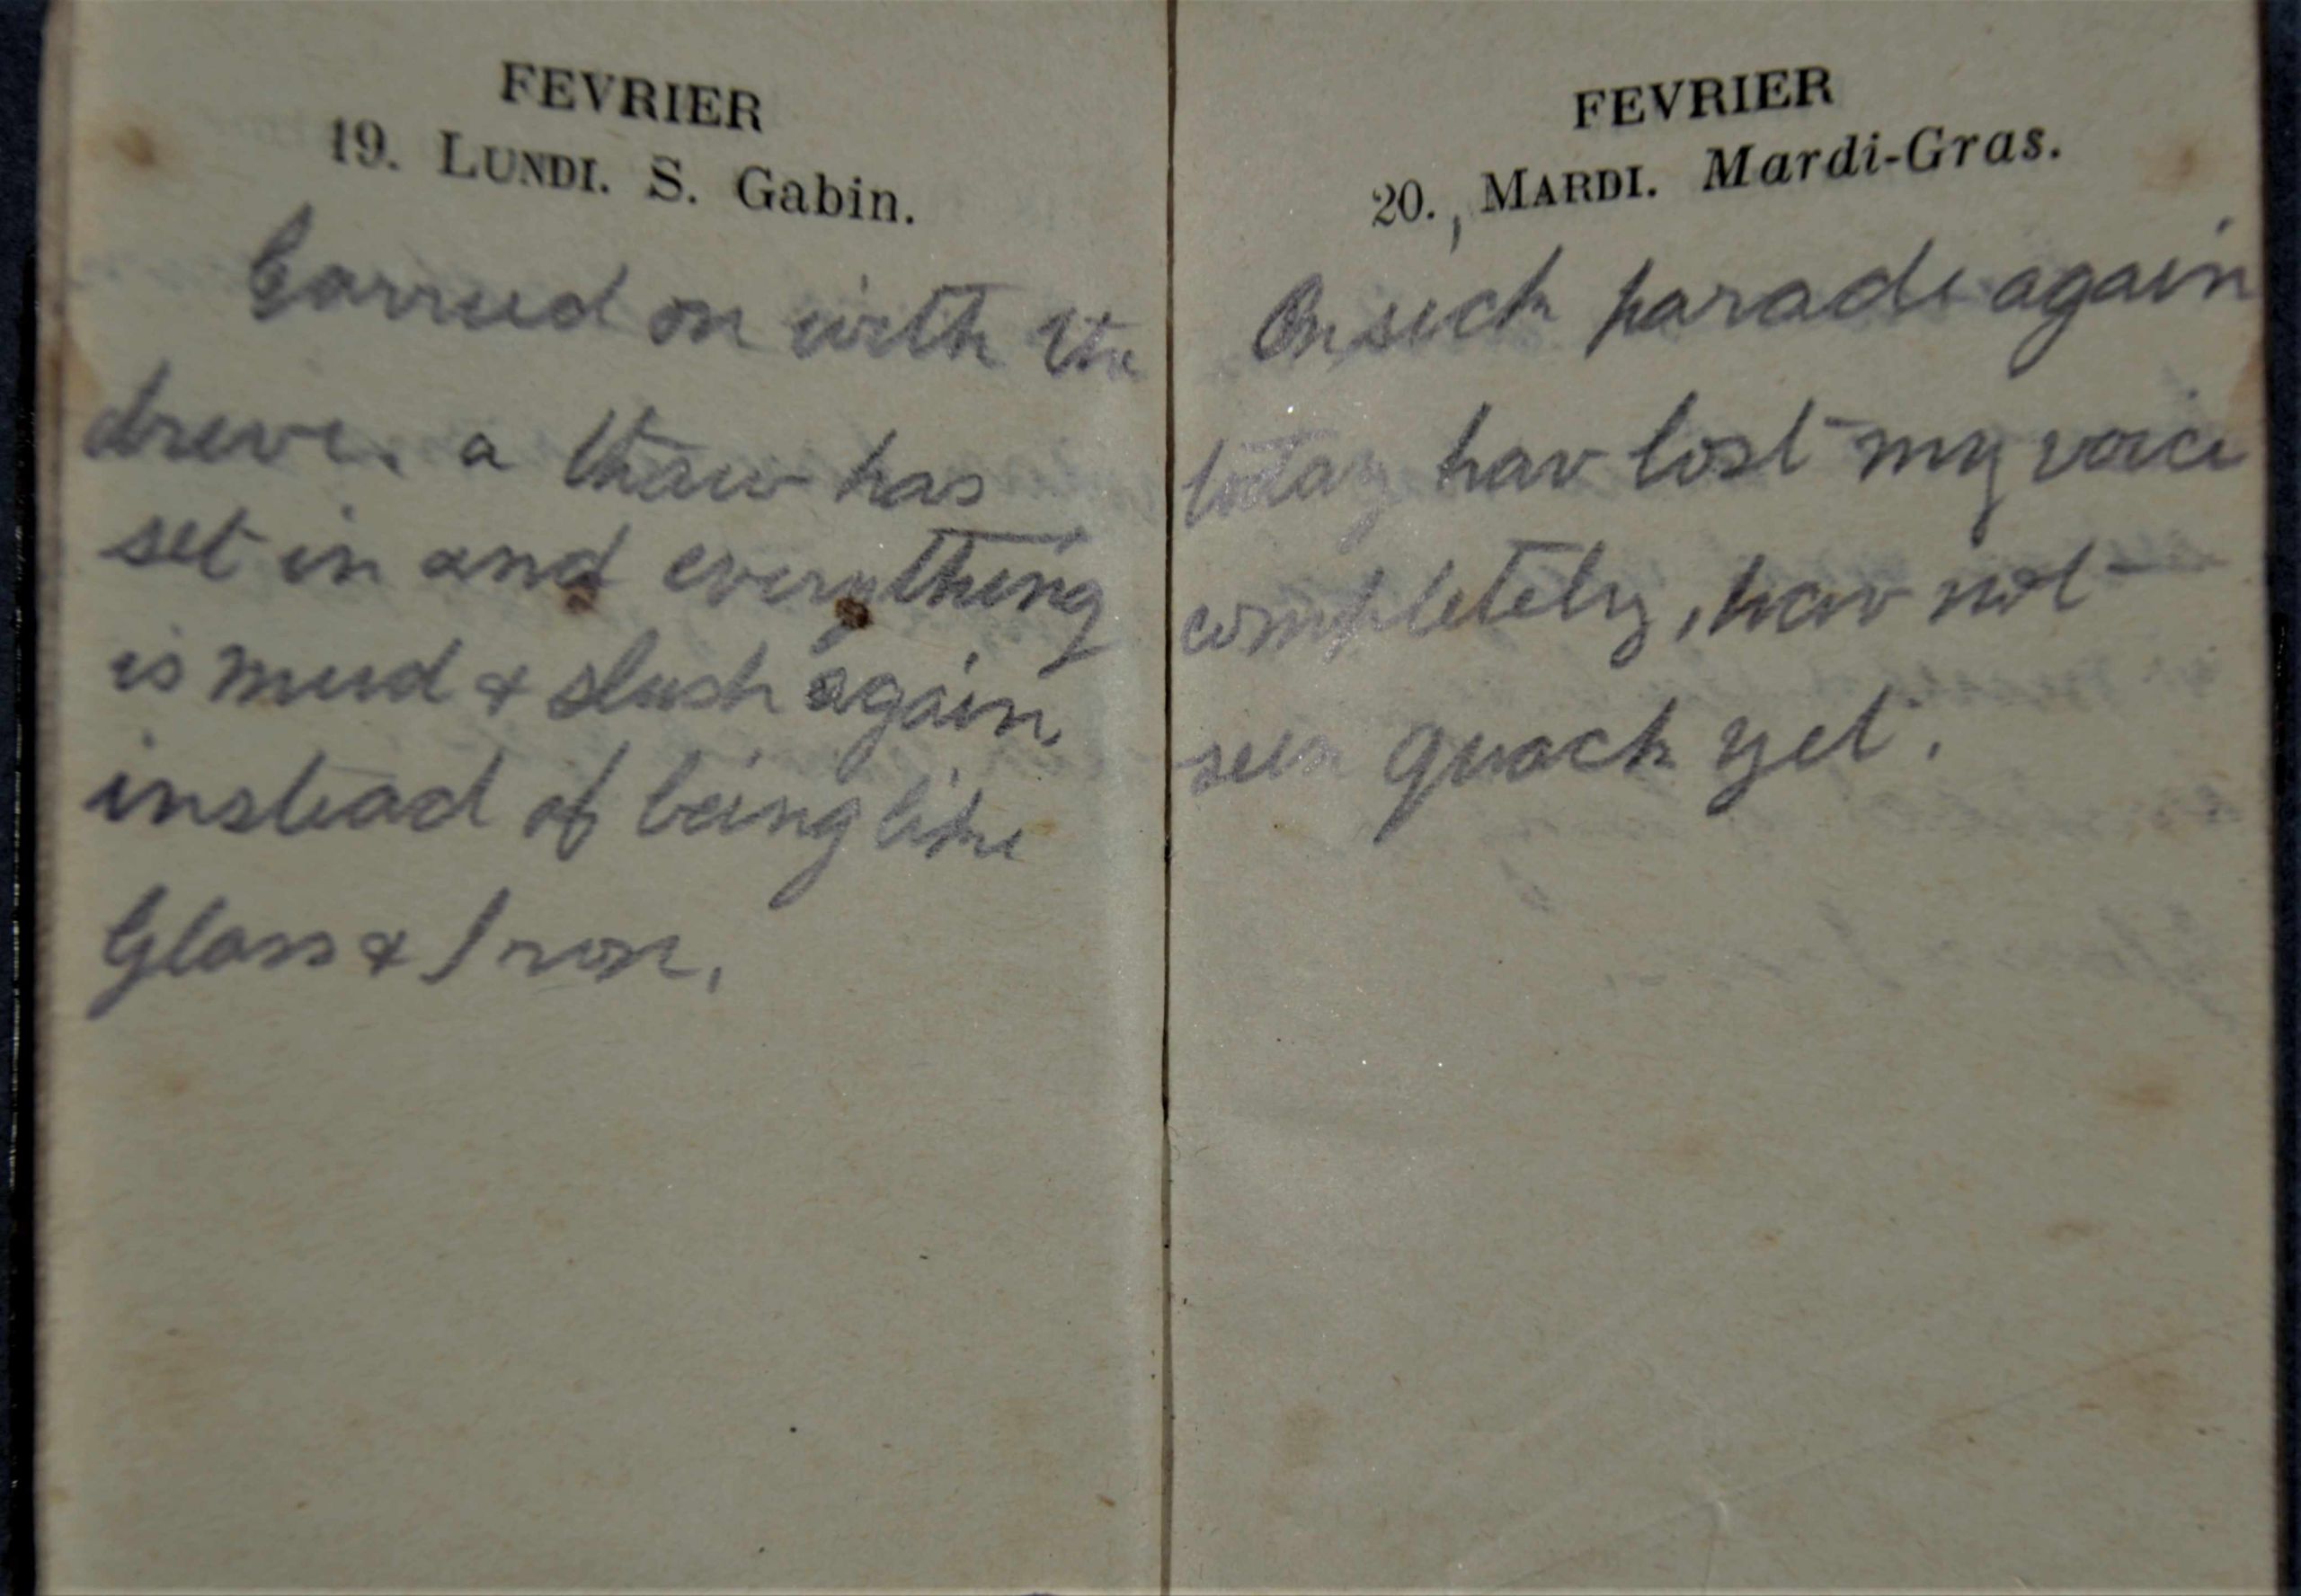 FEVRIER
19. LUNDI. S. Gabin.
Carried on with the
drive. a thaw has
set in and everything
is mud & slush again,
instead of being like
Glass & Iron.
FEVRIER
20. MARDI. Mardi-Gras.
On sick parade again
today hav lost my voice
completely, hav not
seen quack yet.